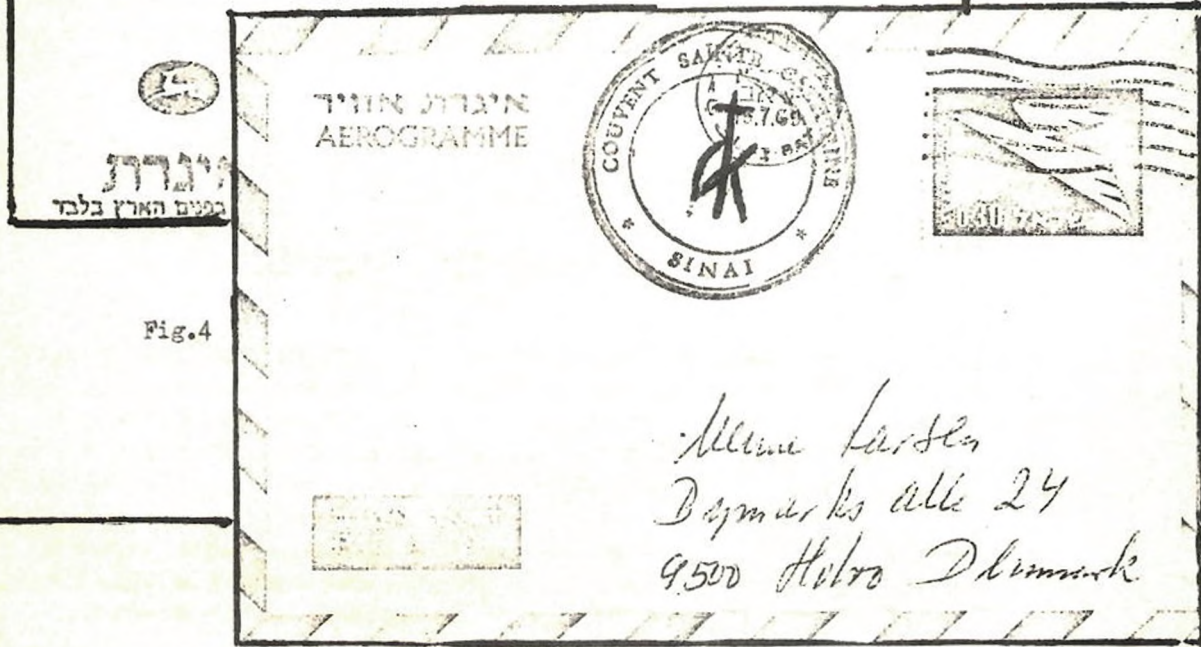 איגרת
בפנים הארץ בלבד
Fig.4
איגרת אויר
AEROGRAMME
COUVENT SAINTE CATHERINE
* SINAI *
.7.69
0.30 ישראל
Larsen
alle 24
9500 Hobro Denmark